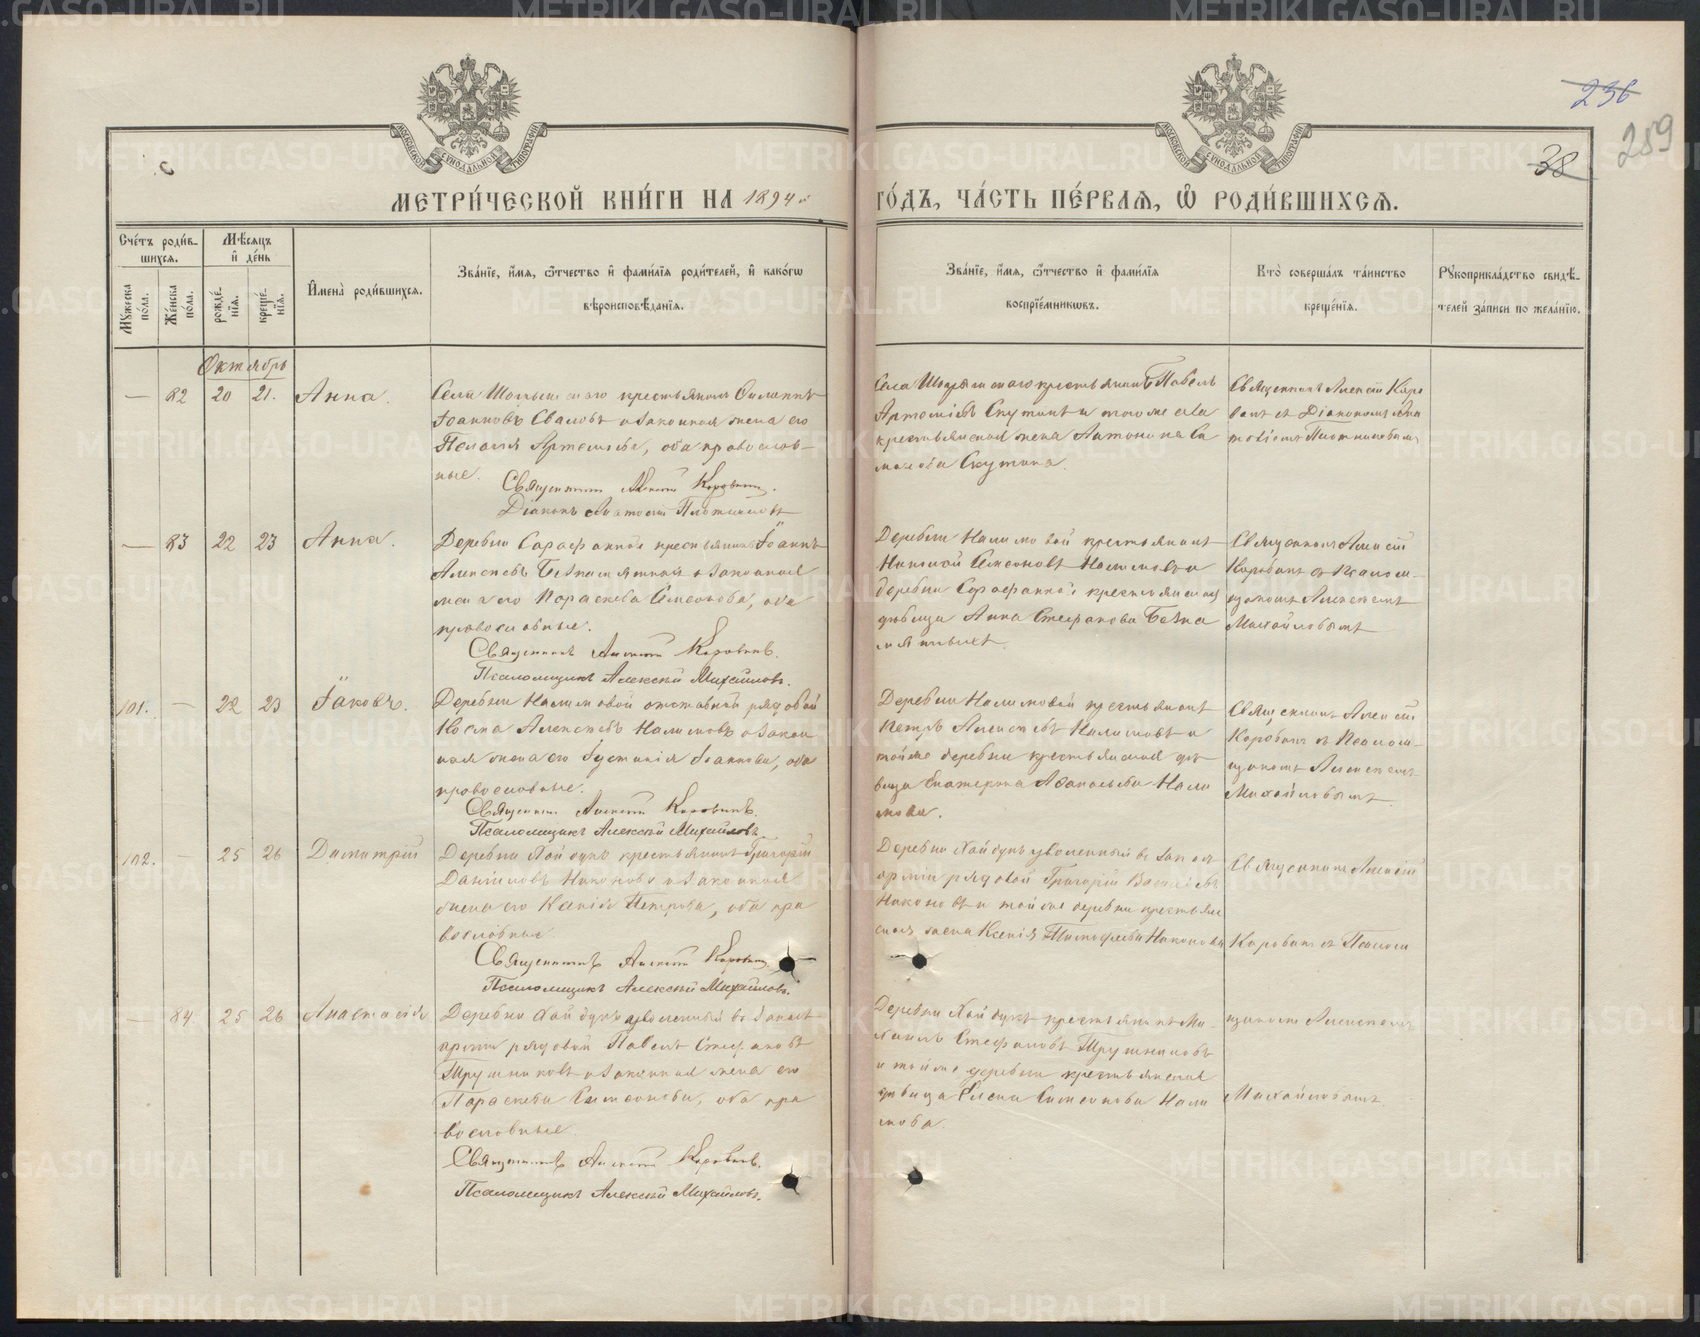 236
259
38
МЕТРИ́ЧЕСКОЙ КНИ́ГИ НА 1894й ГО́ДЪ, ЧА́СТЬ ПЕ́РВАЯ, Ѡ РОДИ́ВШИХСЯ.
Сче́тъ роди́в-
шихся.
Му́жеска по́ла.
Же́нска по́ла.
Мѣ́сяцъ и де́нь
рожде́-
нїя.
креще́-
нїя.
Имена̀ роди́вшихся.
Зва́нїе, и́мя, ѻ́тчество и фами́лїя роди́телей, и како́гѡ
вѣроисповѣ́данїя.
Зва́нїе, и́мя, ѻ́тчество и фами́лїя
воспрїе́мникѡвъ.
Кто̀ соверша́лъ та́инство
креще́нїя.
Рꙋкоприкла́дство свидѣ́-
телей за́писи по жела́нїю.
Октябрь
— 82 20 21. Анна.
Села крестьянинъ Филиппъ
Іоанновъ и законная жена его
Пелагія Артемьева, оба православ-
ные.
Священникъ Алексій Коровинъ.
Діаконъ Плотниковъ
Села крестьянинъ Павелъ
Скутинъ и того же села
крестьянская жена Антонина
Скутина.
Священникъ Алексій Коро
винъ съ Діакономъ
Плотниковымъ
— 83 22 23 Анна.
Деревни Сарафанной крестьянинъ Іоаннъ
Алексѣевъ и законная
жена его Параскева Симеонова, оба
православные.
Священникъ Алексій Коровинъ.
Псаломщикъ Алексѣй Михайловъ.
Деревни Налимовой крестьянинъ
Николай Симеоновъ Налимовъ и
деревни Сарафанной крестьянская
дѣвица Анна Стефанова
Священникъ Алексій
Коровинъ съ Псалом-
щикомъ Алексѣемъ
Михайловымъ
101. — 22 23 Іаковъ.
Деревни Налимовой отставной рядовой
Косма Алексѣевъ Налимовъ и закон
ная жена его Іустинія Іоаннова, оба
православные.
Священникъ Алексій Коровинъ.
Псаломщикъ Алексѣй Михайловъ.
Деревни Налимовой крестьянинъ
Петръ Алексѣевъ Налимовъ и
той же деревни крестьянская дѣ
вица Екатерина Аѳанасьева Нали
мова.
Священникъ Алексій
Коровинъ съ Псалом-
щикомъ Алексѣемъ
Михайловымъ
102. — 25 26 Димитрій
Деревни крестьянинъ Григорій
Даніиловъ Никоновъ и законная
жена его Ксенія Петрова, оба пра
вославные
Священникъ Алексій Коровинъ.
Псаломщикъ Алексѣй Михайловъ.
Деревни уволенный въ запасъ
арміи рядовой Григорій
Никоновъ и той же деревни крестьян
ская жена Ксенія Тимоѳеева Никонова
Священникъ Алексій
Коровинъ съ Псалом
— 84 25 26 Анастасія
Деревни уволенный въ запасъ
арміи рядовой Павелъ Стефановъ
Трушниковъ и законная жена его
Параскева Симеонова, оба пра
вославные
Священникъ Алексій Коровинъ.
Псаломщикъ Алексѣй Михайловъ.
Деревни крестьянинъ Ми-
хаилъ Стефановъ Трушниковъ
и той же деревни крестьянская
дѣвица Елена Симеонова Нали
мова.
щикомъ Алексѣемъ
Михайловымъ
METRIKI.GASO-URAL.RU